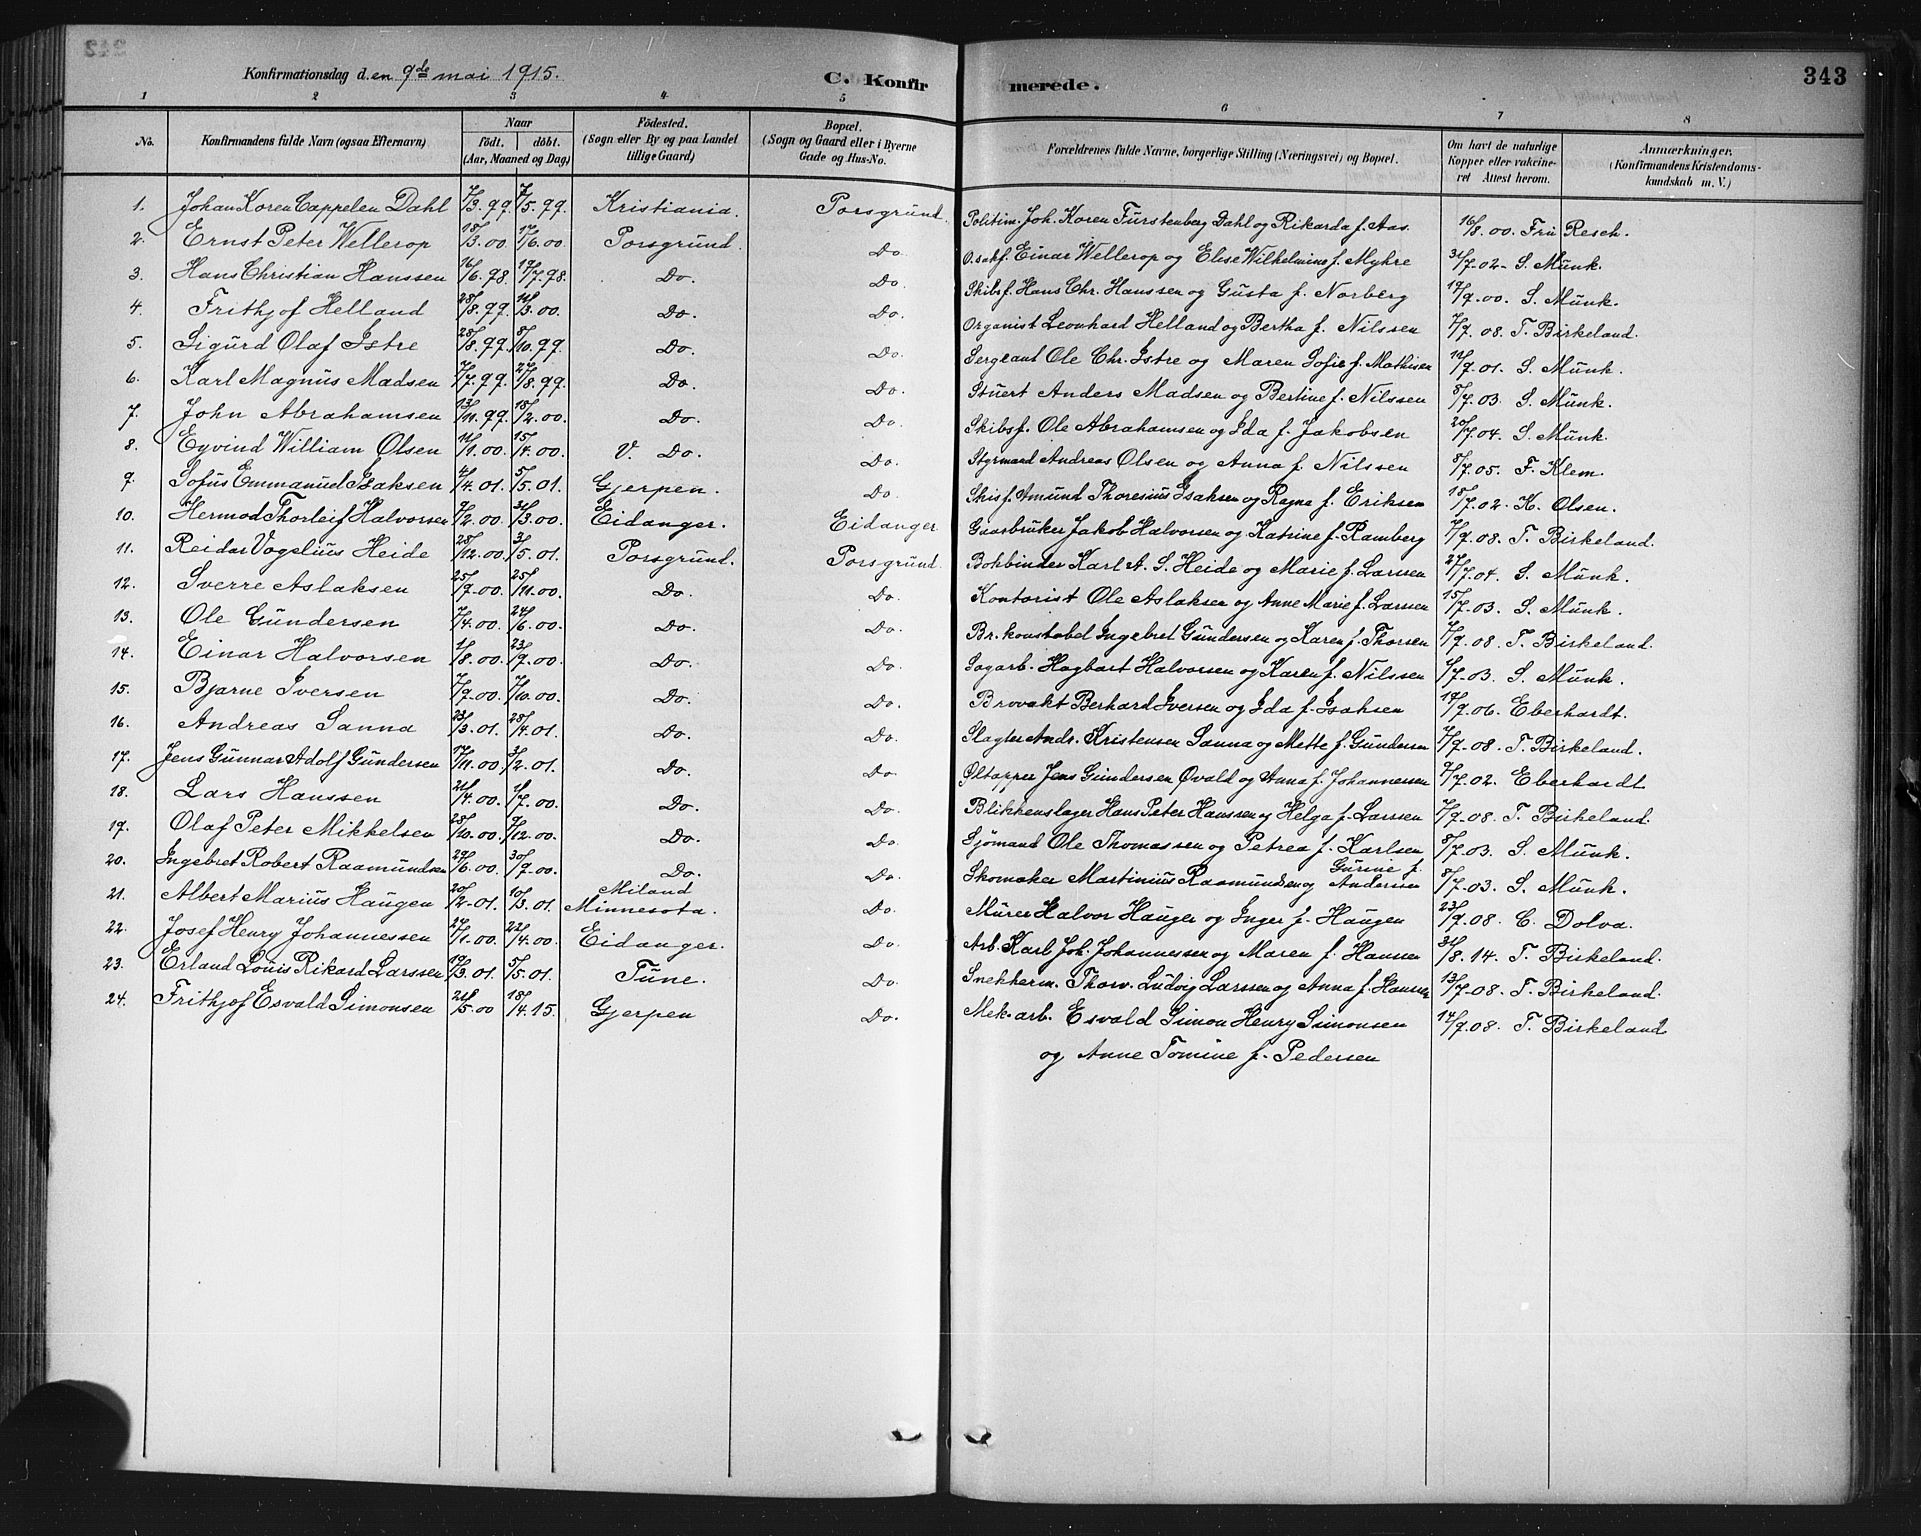 343
Konfirmationsdag den 9de mai 1915.
C. Konfirmerede.
1 2 3 4 5 6 7 8
No. Konfirmandens fulde Navn (ogsaa Efternavn) Naar födt. döbt. (Aar, Maaned og Dag) Födested. (Sogn eller By og paa Landet tillige Gaard) Bopæl. (Sogn og Gaard eller i Byerne Gade og Hus-No. Forældrenes fulde Navne, borgerlige Stilling (Næringsvei) og Bopæl. Om havt de naturlige Kopper eller vakcineret Attest herom. Anmærkninger. (Konfirmandens Kristendomskundskab m. V.)
1. Johan Koren Cappelen Dahl 7/3.99. 7/5.99. Kristiania. Porsgrund. Politim. Joh. Koren Fürstenberg Dahl og Rikarda f. Aas. 16/8.00. Frü Resch.
2. Ernst Peter Wellerop 18/3.00. 17/6.00. Porsgrund. Do. O.sakf. Einar Wellerop og Elise Wilhelmine f. Myhre 31/7.02- S. Munk.
3. Hans Christian Hanssen 16/6.98. 17/7.98. Do. Do. Skibsf. Hans Chr. Hanssen og Gusta f. Norberg 19/9.00. S. Munk.
4. Frithjof Helland 28/8.99. 11/3.00. Do. Do. Organist Leonhard Helland og Bertha f. Nilssen 7/9.08. T. Birkeland.
5. Sigurd Olaf Istre 28/8.99. 8/10.99. Do. Do. Sergeant Ole Chr. Istre og Maren Sofie f. Mathisen 12/9.01. S. Munk.
6. Karl Magnus Madsen 7/7.99. 27/8.99. Do. Do. Stuert Anders Madsen og Bertine f. Nilssen 8/7.03. S. Munk.
7. John Abrahamsen 13/11.99. 18/2.00. Do. Do. Skibsf. Ole Abrahamsen og Ida f. Jakobsen 20/7.04. S. Munk.
8. Eyvind William Olsen 11/1.00. 15/4.00. V. Do. Do. Styrmand Andreas Olsen og Anna f. Nilssen 8/7.05. F. Klem.
9. Sofus Emmanuel Isaksen 4/4.01. 5/5.01. Gjerpen. Do. Skisf. Amund Thoresius Isaksen og Ragna f. Eriksen 18/7.02. K. Olsen.
10. Hermod Thorleif Halvorsen 7/2.00. 31/3.00. Eidanger. Eidanger Gaasbruker Jakob Halvorsen og Katrine f. Ramberg 7/9.08. T. Birkeland.
11. Reidar Vogelius Heide 28/12.00. 3/5.01. Porsgrund. Porsgrund. Bokbinder Karl A. S. Heide og Marie f. Larssen 27/7.04. S. Munk.
12. Sverre Aslaksen 25/9.00. 25/11.00. Do. Do. Kontorist Ole Aslaksen og Anne Marie f. Larssen 15/7.03. S. Munk.
13. Ole Gundersen 7/4.00. 24/6.00. Do. Do. Br. konstabel Ingebret Gundersen og Karen f. Thorsen 7/9.08. T. Birkeland.
14. Einar Halvorsen 1/8.00. 23/9.00. Do. Do. Sagarb. Hagbart Halvorsen og Karen f. Nilssen 1/7.03. S. Munk.
15. Bjarne Iversen 7/9.00. 7/10.00. Do. Do. Brovakt Berhard Iversen og Ida f. Isaksen 19/9.06. Eberhardt.
16. Andreas Sanna 23/3.01. 28/4.01. Do. Do. Slagter Andr. Kristensen Sanna og Mette f. Gundersen 7/9.08. T. Birkeland.
17. Jens Gunnar Adolf Gundersen 17/11.00. 3/2.01. Do. Do. Øltapper Jens Gundersen Øvald og Anna f. Johannessen 7/7.02. Eberhardt
18. Lars Hanssen 21/4.00. 1/7.00. Do. Do. Blikkenslager Hans Peter Hanssen og Helga f. Larssen 7/9.08. T. Birkeland.
19. Olaf Peter Mikkelsen 28/10.00. 9/12.00. Do. Do. Sjömand Ole Thomassen og Petrea f. Karlsen 8/7.03. S. Munk.
20. Ingebret Robert Raamundsen 29/6.00. 30/9.00. Do. Do. Skomaker Martinius Raamundsen og Gurine f. Andersen 8/7.03. S. Munk.
21. Albert Marius Haugen 20/2.01. 10/3.01. Miland Minnesota. Do. Murer Halvor Haugen og Inger f. Haugen 23/9.08. C. Dolva.
22. Josef Henry Johannessen 27/1.00. 22/4.00. Eidanger. Do. Arb. Karl Joh. Johannessen og Maren f. Hansen 31/8.14. T. Birkeland.
23. Erland Louis Rikard Larssen 19/3.01. 5/5.01. Tune. Do. Snekkerm. Thorv. Ludvig Larssen og Anna f. Hansen 13/7.08. T. Birkeland.
24. Frithjof Esvald Simonsen 21/5.00 18/4.15. Gjerpen Do. Mek. arb. Esvald Simon Henry Simonsen 14/9.08. T. Birkeland
og Anne Tomine f. Pedersen